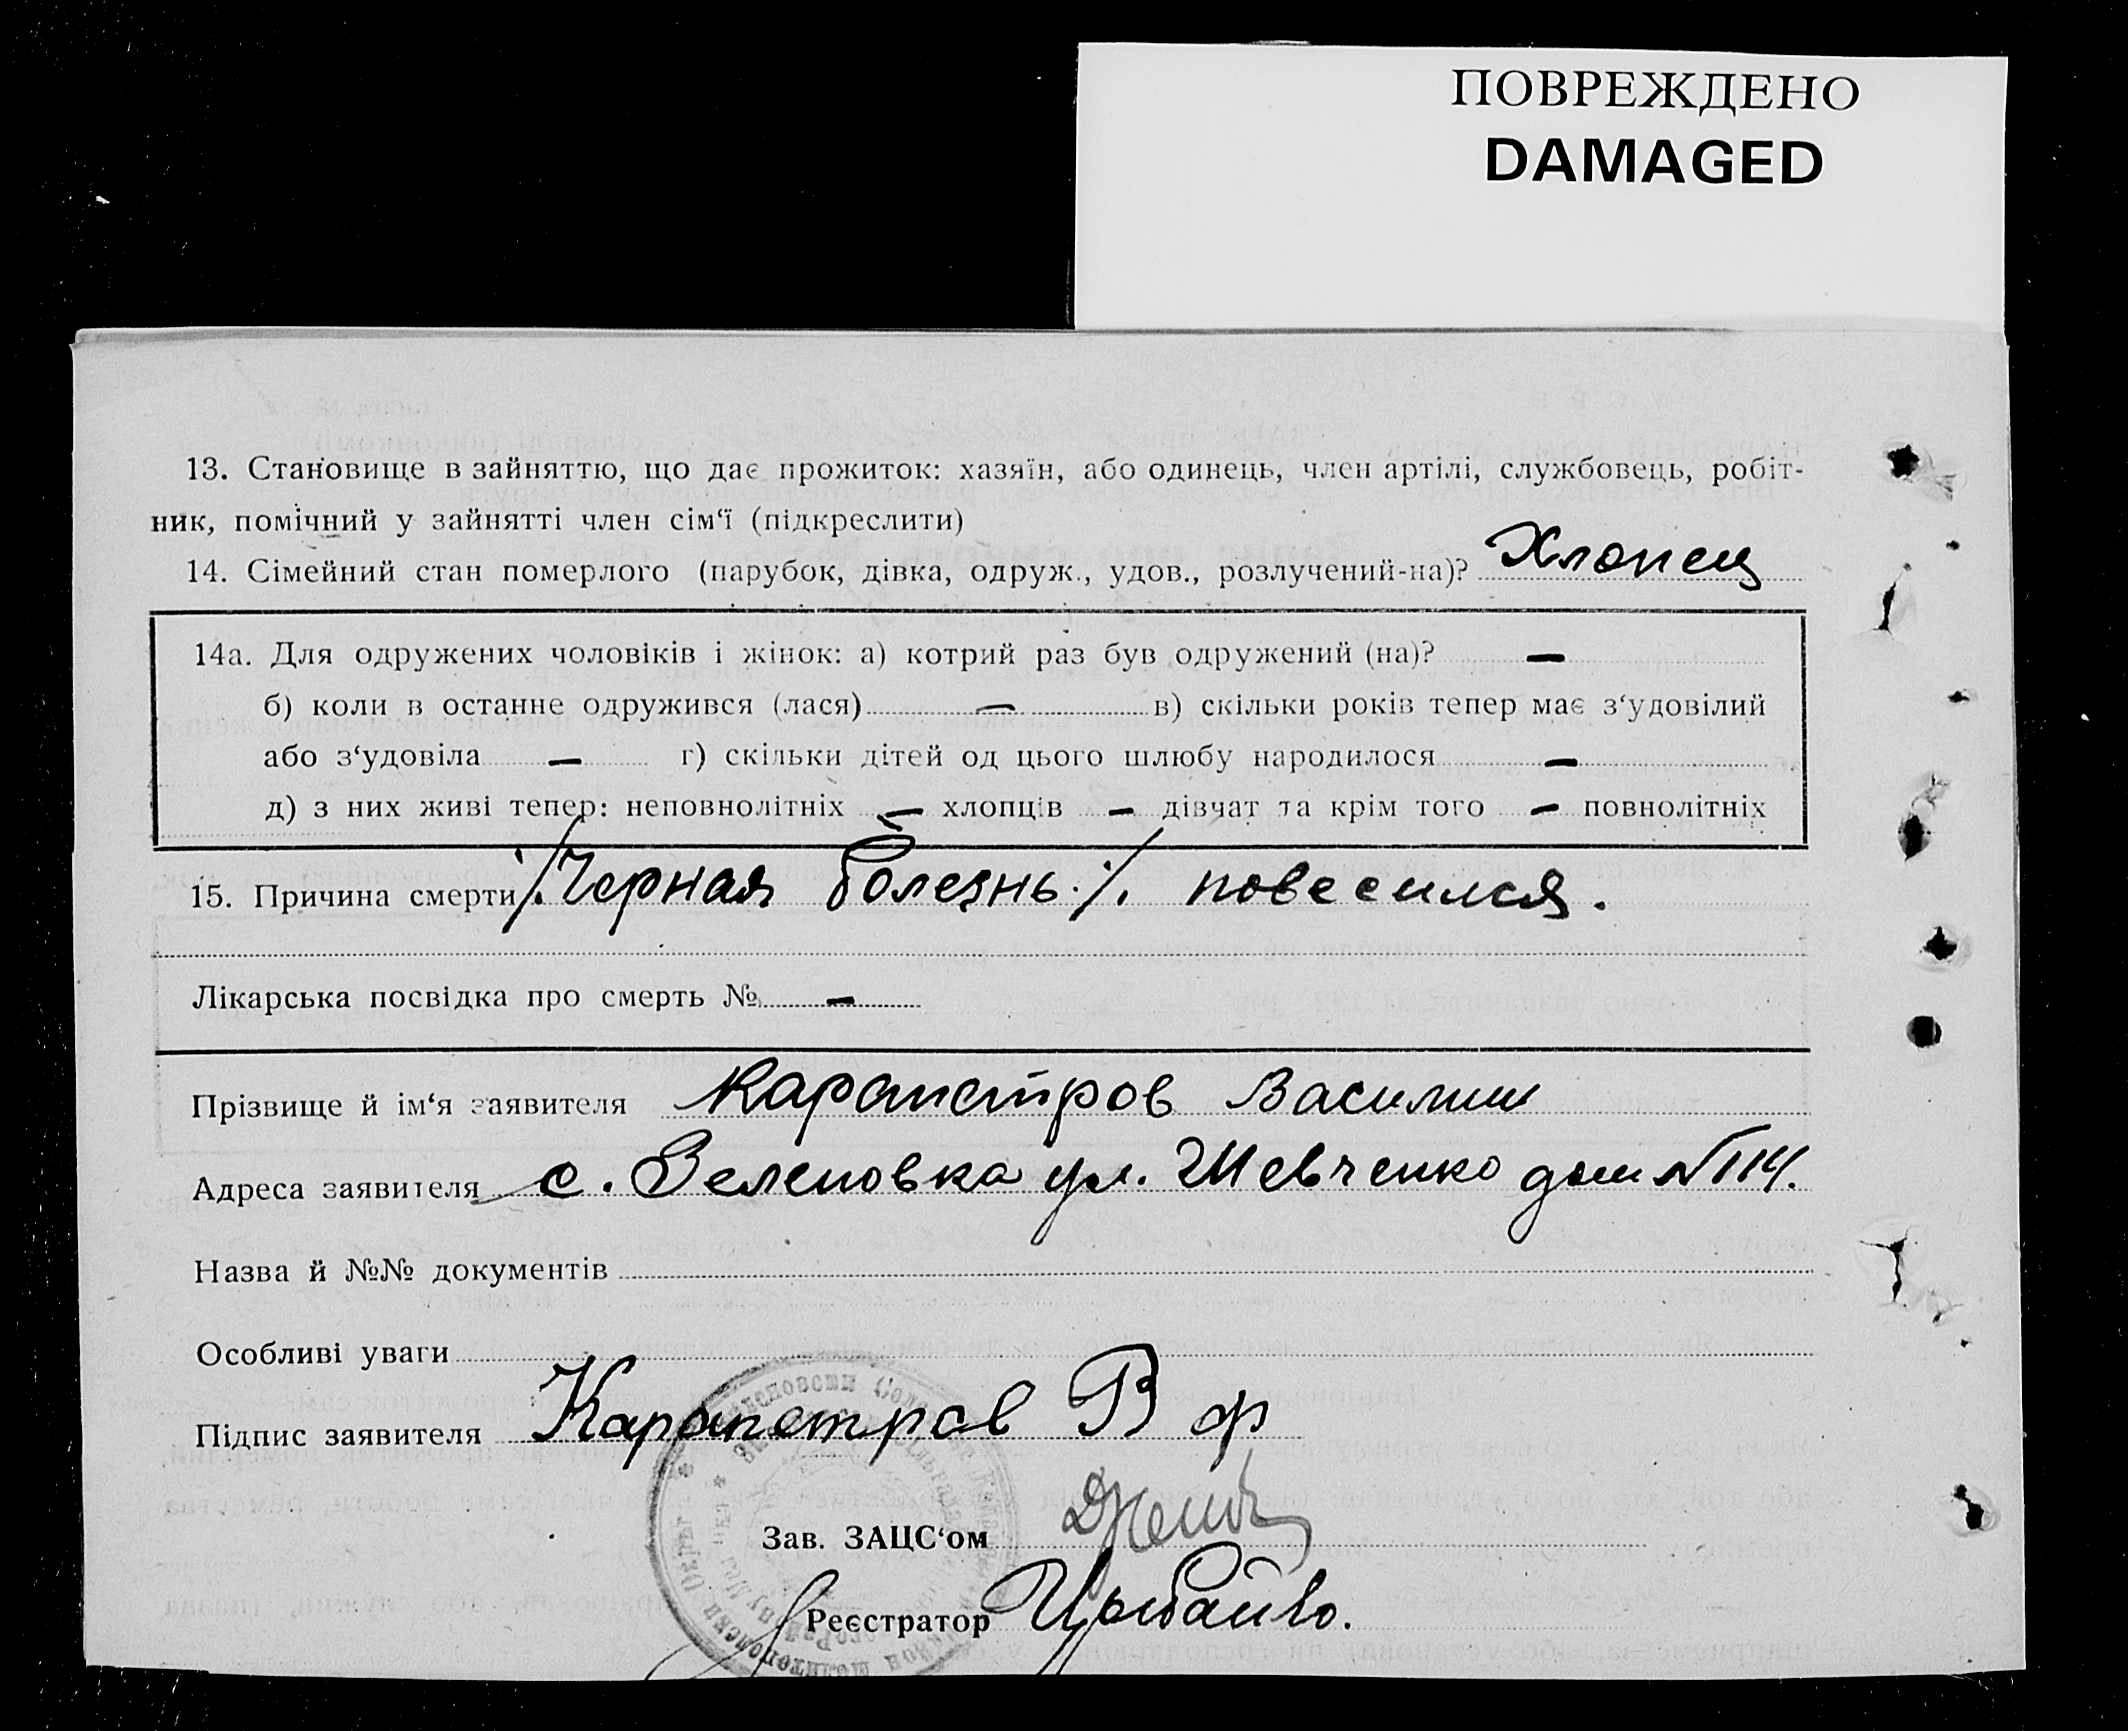 ПОВРЕЖДЕНО
DAMAGED
13. Становище в зайняттю, що дає прожиток: хазяїн, або одинець, член артілі, службовець, робіт-
ник, помічний у зайнятті член сім‘ї (підкреслити)
14. Сімейний стан померлого (парубок, дівка, одруж., удов., розлучений-на)? Хлопец
14а. Для одружених чоловіків і жінок: а) котрий раз був одружений (на)? —
б) коли в останне одружився (лася) — в) скільки років тепер має з‘удовілий
або з‘удовіла — г) скільки дітей од цього шлюбу народилося —
д) з них живі тепер: неповнолітніх — хлопців — дівчат та крім того — повнолітніх
15. Причина смерти /. Черная болезнь ./. повесился.
Лікарська посвідка про смерть № —
Прізвище й ім‘я заявителя Карапетров Василии
Адреса заявителя с. Зеленовка ул. Шевченко дом № 114.
Назва й №№ документів
Особливі уваги
Підпис заявителя Карапетров В ф
Зав. ЗАЦС‘ом
Реєстратор